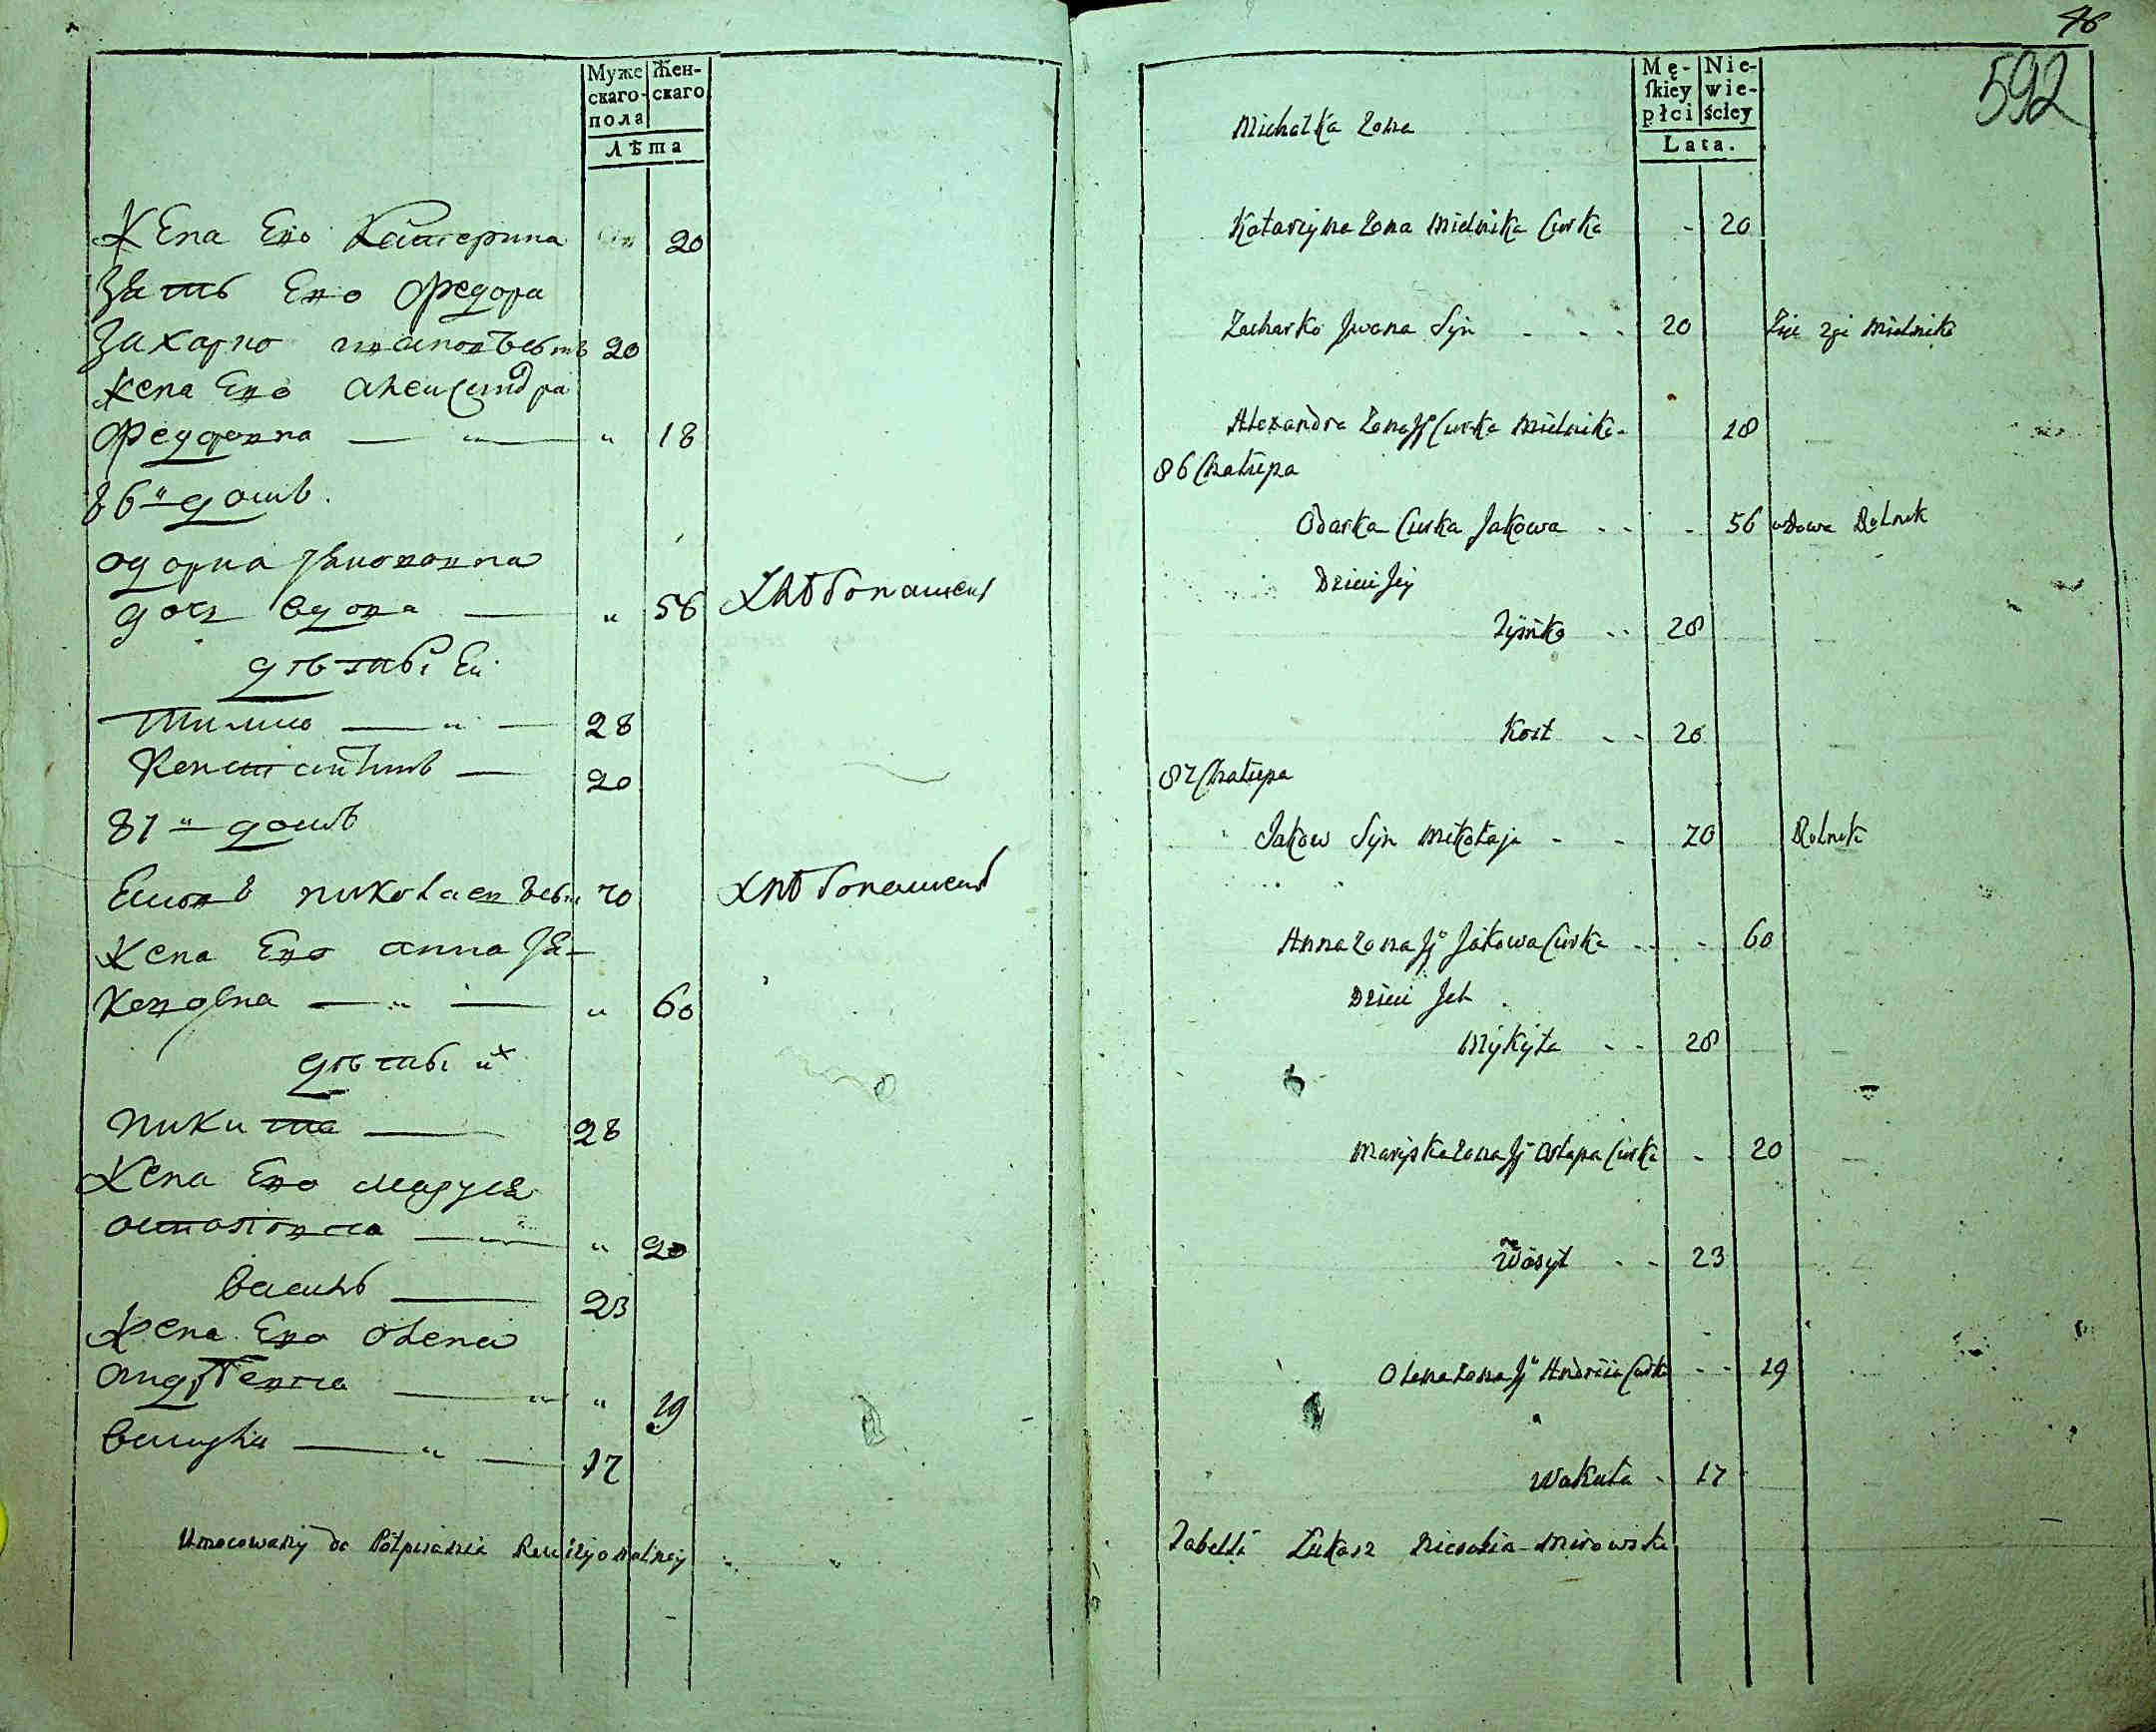 Муже
скаго
пола
Жен-
скаго
Лѣта
Жена Его Катерина 20
Зять Его Федора
Захарко Ивановъ 20
Жена Его Александра
Федоровна — " — " 18
86 " домъ
одарка Яковова
дочь вдова — " 56 хлѣбопашецъ
дѣти Еи
Тимко — " — 28
Константинъ — 20
87 " домъ
Яковъ николаевъ 70 хлѣбопашецъ
Жена Его анна Я-
кововна — " — " 60
дѣти ихъ
никита — 28
Жена Его маруся
остапова — " — " 20
василь — 23
Жена Его олена
андреева — " " 19
вакула — " — 17
Umocowany do Podpisania Rewizyonalney
46
592
Mę-
skiey
płci
Nie-
wie-
ściey
Lata.
Michałka żona
Katarzyna żona Mielnika Curka - 20
Zacharko Jwana Syn - - - 20 Mielnika
Alexandra żona Jego Curka Mielnika - 18
86 Chałupa
Odarka Curka Jakowa - - - 56 wdowa Rolnik
Dzieci Jey
Tymko - - 28
Kost - - 20
87 Chałupa
Jakow Syn Mikołaja - - 70 Rolnik
Anna żona Jego Jakowa Curka - - - 60
Dzieci Jch
Mykyta - - 28
Maryska żona Jego Ostapa Curka - - 20
Wasyl - - 23
Olena żona Jego Andrzeia Curka - - 19
Wakuła - 17
Tabelli Łukasz Mirowski